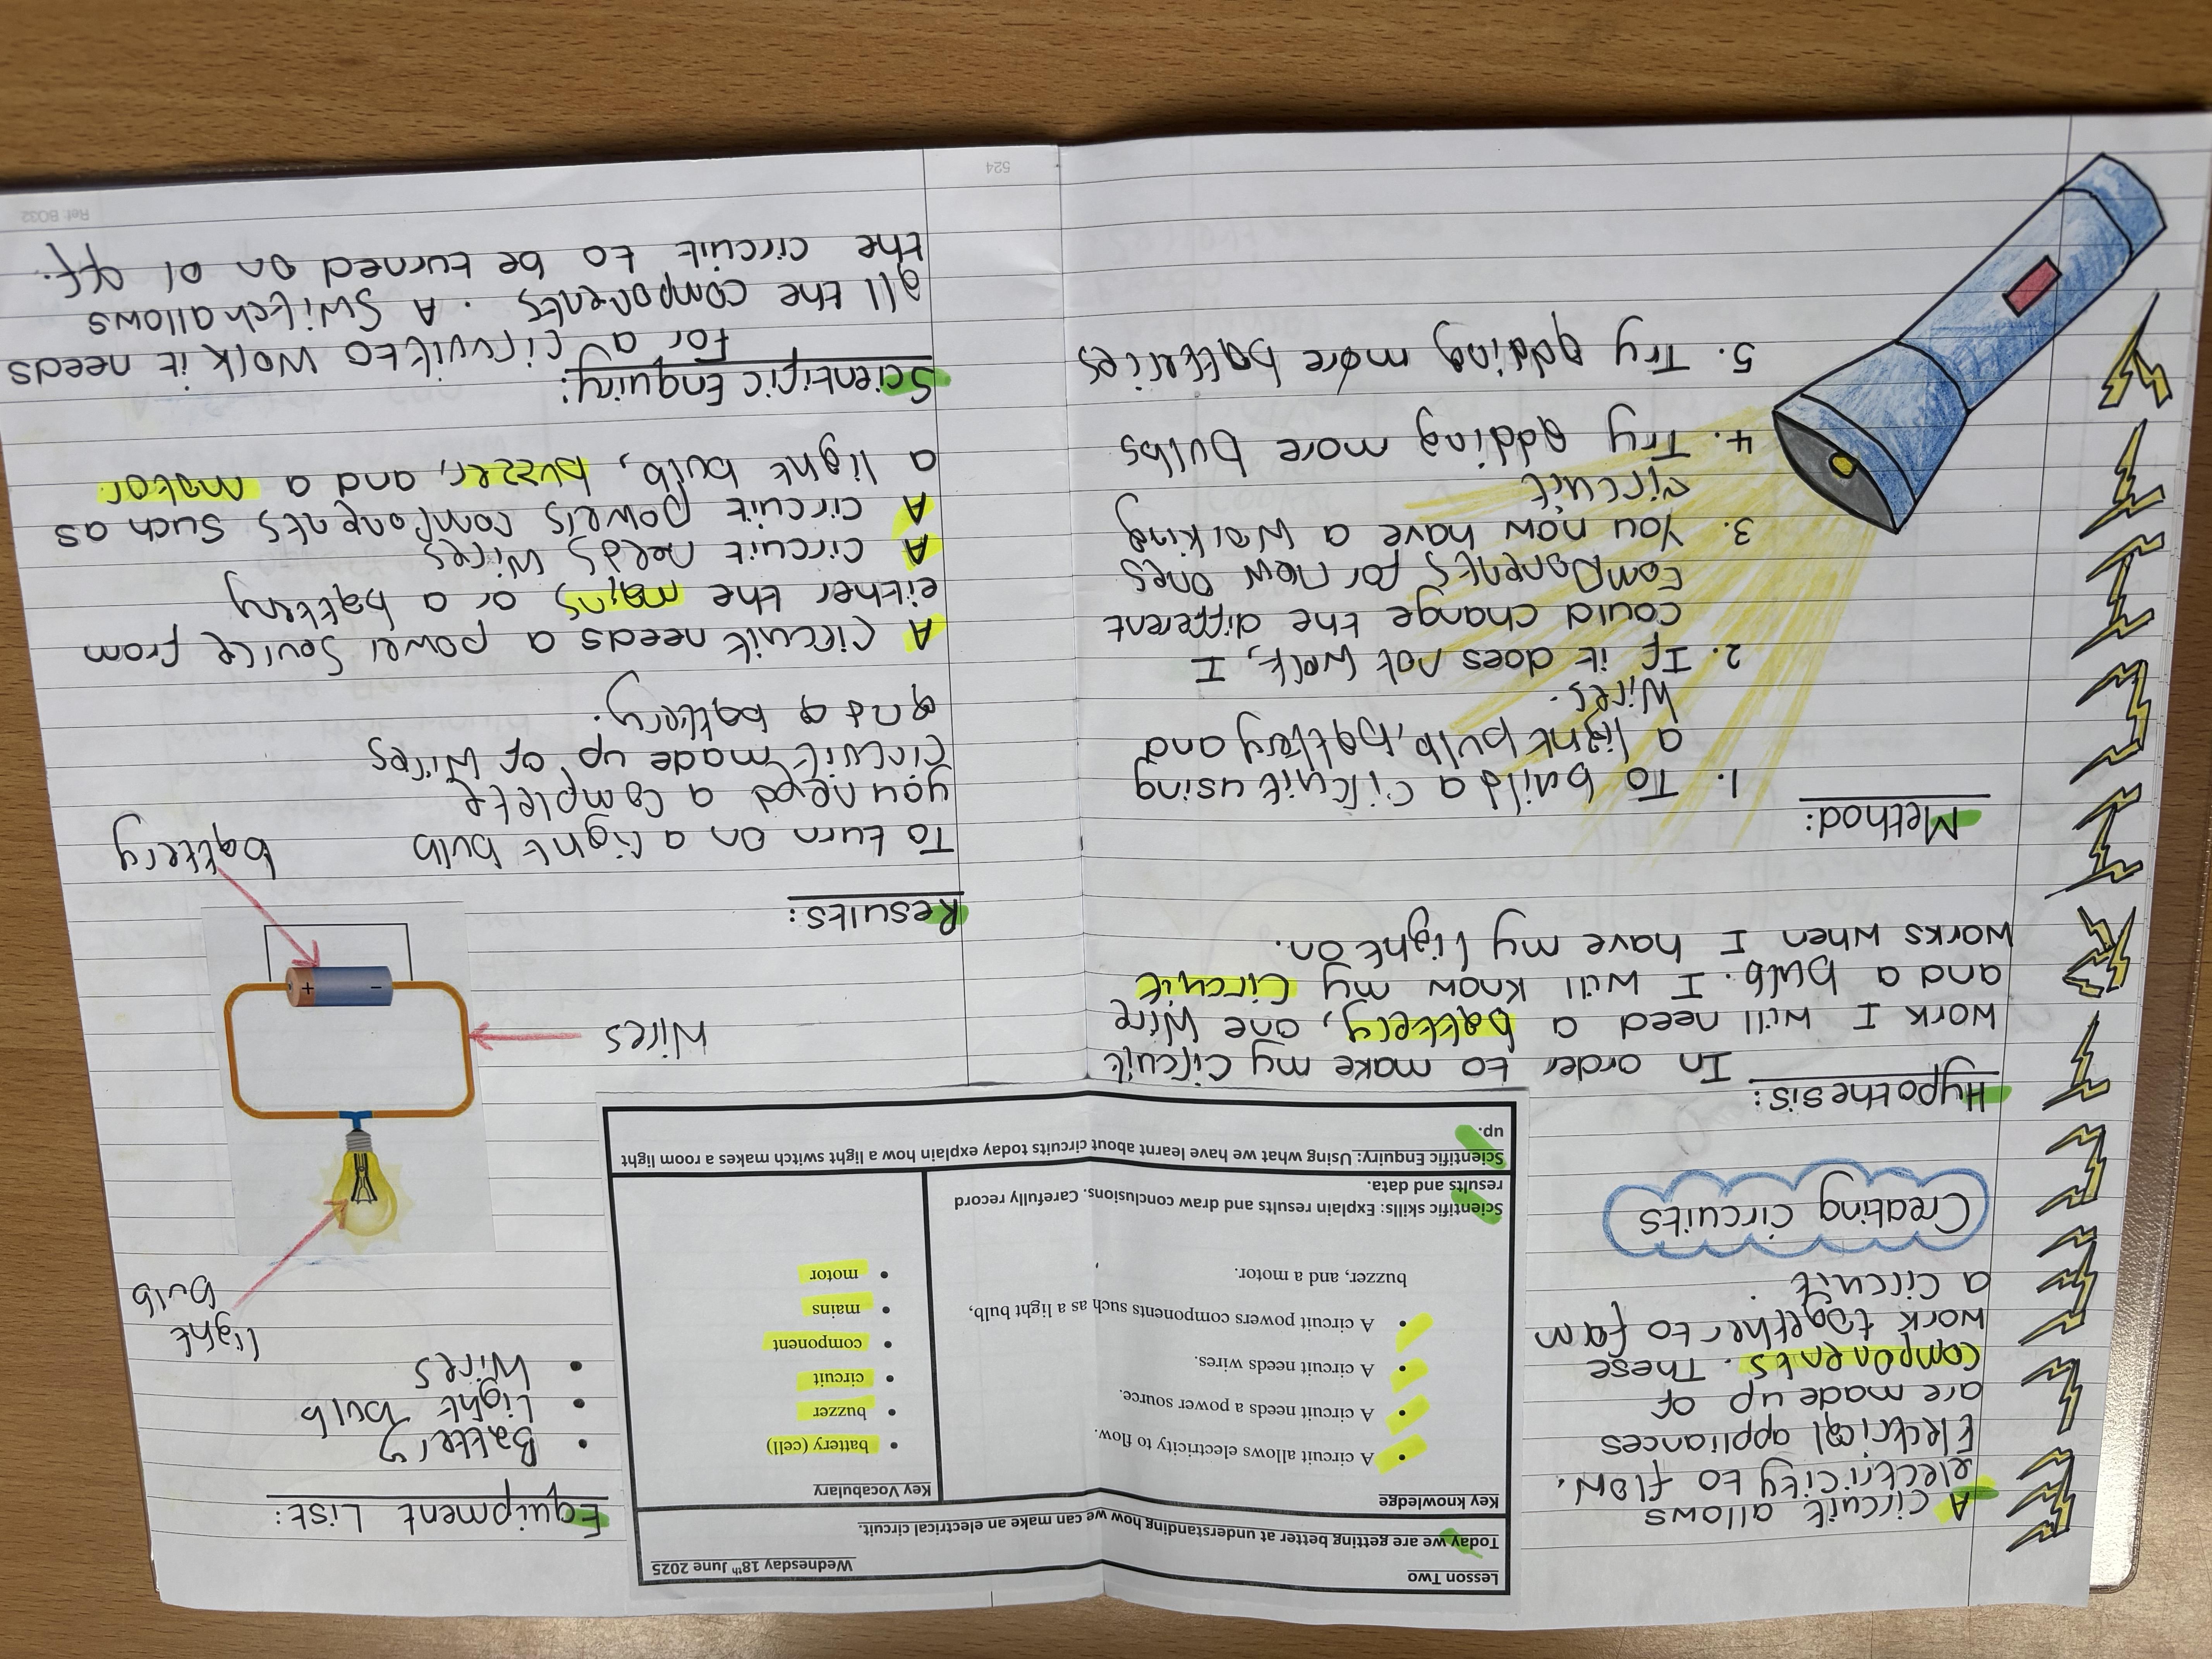 A circuit allows
electricity to flow.
Electrical appliances
are made up of
components. These
work together to form
a circuit.
Creating circuits
Lesson Two
Wednesday 18th June 2025
Today we are getting better at understanding how we can make an electrical circuit.
Key knowledge
• A circuit allows electricity to flow.
• A circuit needs a power source.
• A circuit needs wires.
• A circuit powers components such as a light bulb,
buzzer, and a motor.
Key Vocabulary
• battery (cell)
• buzzer
• circuit
• component
• mains
• motor
Scientific skills: Explain results and draw conclusions. Carefully record
results and data.
Scientific Enquiry: Using what we have learnt about circuits today explain how a light switch makes a room light
up.
Hypothesis:
In order to make my circuit
work I will need a battery, one wire
and a bulb. I will know my circuit
works when I have my light on.
Method:
1. To build a circuit using
a light bulb, battery and
wires.
2. If it does not work, I
could change the different
components for new ones
3. You now have a working
circuit
4. Try adding more bulbs
5. Try adding more batteries
Equipment List:
• Battery
• Light bulb
• Wires
light
bulb
Wires
+
-
battery
Results:
To turn on a light bulb
you need a complete
circuit made up of wires
and a battery.
A circuit needs a power source from
either the mains or a battery
A circuit needs wires
A circuit powers components such as
a light bulb, buzzer, and a motor.
Scientific Enquiry:
For a circuit to work it needs
all the components. A switch allows
the circuit to be turned on or off.
524
Ref: BO32